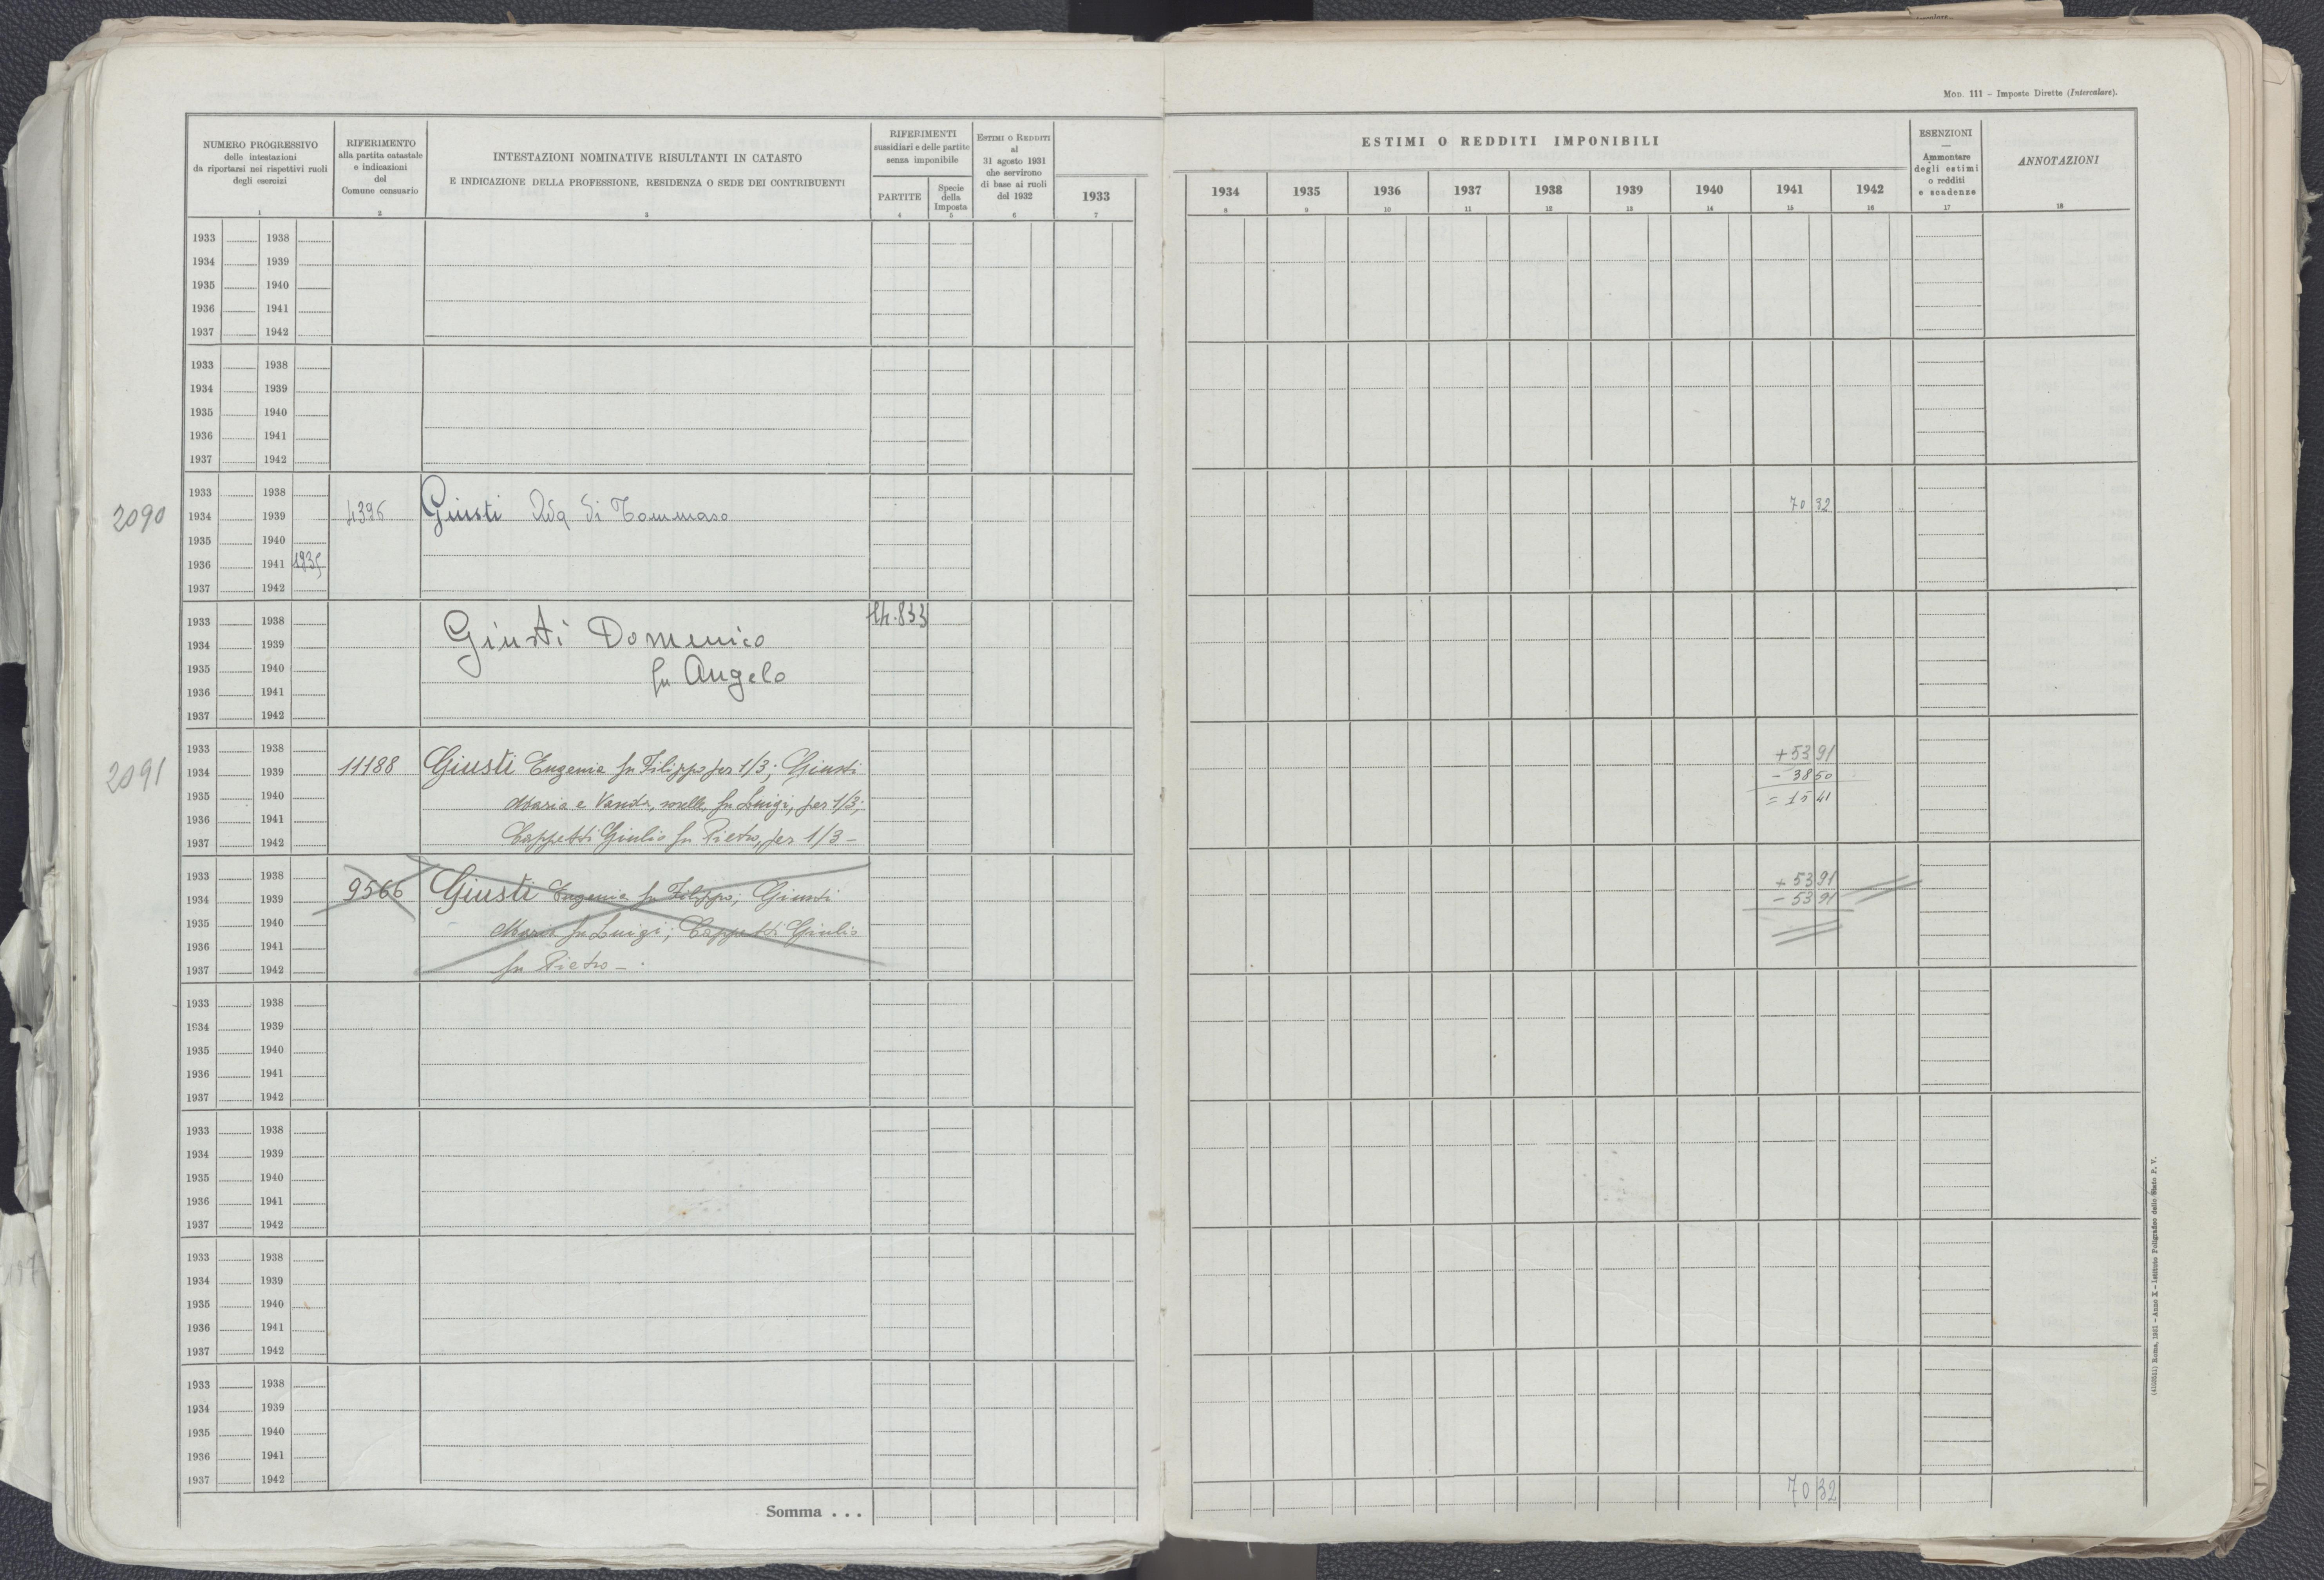 Mod. 111 – Imposte Dirette (Intercalare).
NUMERO PROGRESSIVO
delle intestazioni
da riportarsi nei rispettivi ruoli
degli esercizi
1
RIFERIMENTO
alla partita catastale
e indicazioni
del
Comune censuario
2
INTESTAZIONI NOMINATIVE RISULTANTI IN CATASTO
E INDICAZIONE DELLA PROFESSIONE, RESIDENZA O SEDE DEI CONTRIBUENTI
3
RIFERIMENTI
sussidiari e delle partite
senza imponibile
PARTITE
4
Specie
della
Imposta
5
Estimi o Redditi
al
31 agosto 1931
che servirono
di base ai ruoli
del 1932
6
1933
7
ESTIMI O REDDITI IMPONIBILI
1934 1935 1936 1937 1938 1939 1940 1941 1942
8 9 10 11 12 13 14 15 16
ESENZIONI
—
Ammontare
degli estimi
o redditi
e scadenze
17
ANNOTAZIONI
18
1933 1938
1934 1939
1935 1940
1936 1941
1937 1942
1933 1938
1934 1939
1935 1940
1936 1941
1937 1942
1933 1938
2090 1934 1939 4396 Giusti Ada di Tommaso 70 32
1935 1940
1936 1941 1835
1937 1942
1933 1938 14.833
1934 1939 Giusti Domenico
1935 1940 fu Angelo
1936 1941
1937 1942
1933 1938 + 53 91
2091 1934 1939 11188 Giusti Eugenia fu Filippo per 1/3; Giusti – 38 50
1935 1940 Maria e Vanda, sorelle, fu Luigi, per 1/3; = 15 41
1936 1941
1937 1942 Cappetti Giulio fu Pietro, per 1/3 –
1933 1938 + 53 91
1934 1939 9566 Giusti Eugenia fu Filippo; Giusti – 53 91
1935 1940 Maria fu Luigi; Cappetti Giulio
1936 1941
1937 1942 fu Pietro –
1933 1938
1934 1939
1935 1940
1936 1941
1937 1942
1933 1938
1934 1939
1935 1940
1936 1941
1937 1942
1933 1938
1934 1939
1935 1940
1936 1941
1937 1942
1933 1938
1934 1939
1935 1940
1936 1941
1937 1942
Somma . . . 70 32
Roma, 1931 – Anno X – Istituto Poligrafico dello Stato P. V.